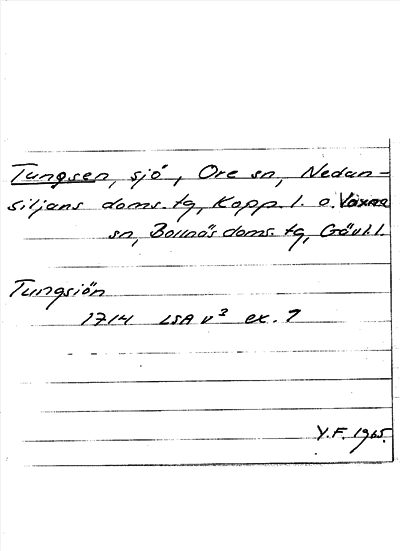 Tungsen, sjö, Ore sn, Nedan-
siljans doms. tg, Kopp. l. o. Voxna
sn, Bollnäs doms. tg, Gävl. l.
Tungsiön
1714 LSA v³ ex. 1
Y.F. 1965.